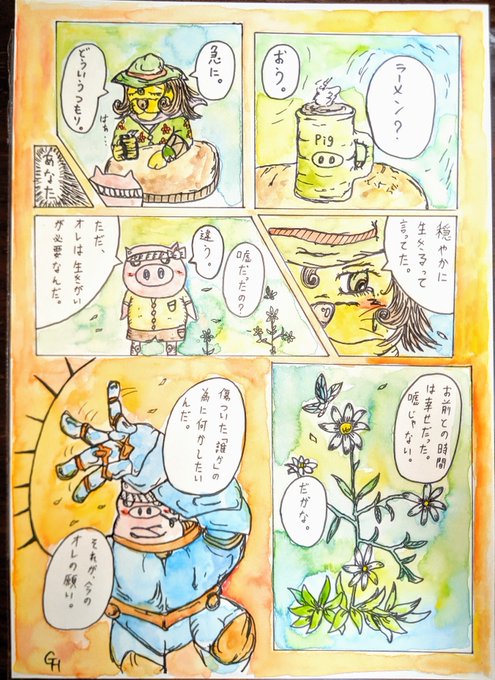 ラーメン?
おう。
Pig
急に。
どういうつもり。
はぁ…
あなた
穏やかに
生きるって
言ってた。
嘘だったの?
違う。
ただ、
オレは生きがい
が必要なんだ。
お前との時間
は幸せだった。
嘘じゃない。
だがな。
傷ついた「誰か」の
為に何かしたい
んだ。
それが、今の
オレの願い。
GH